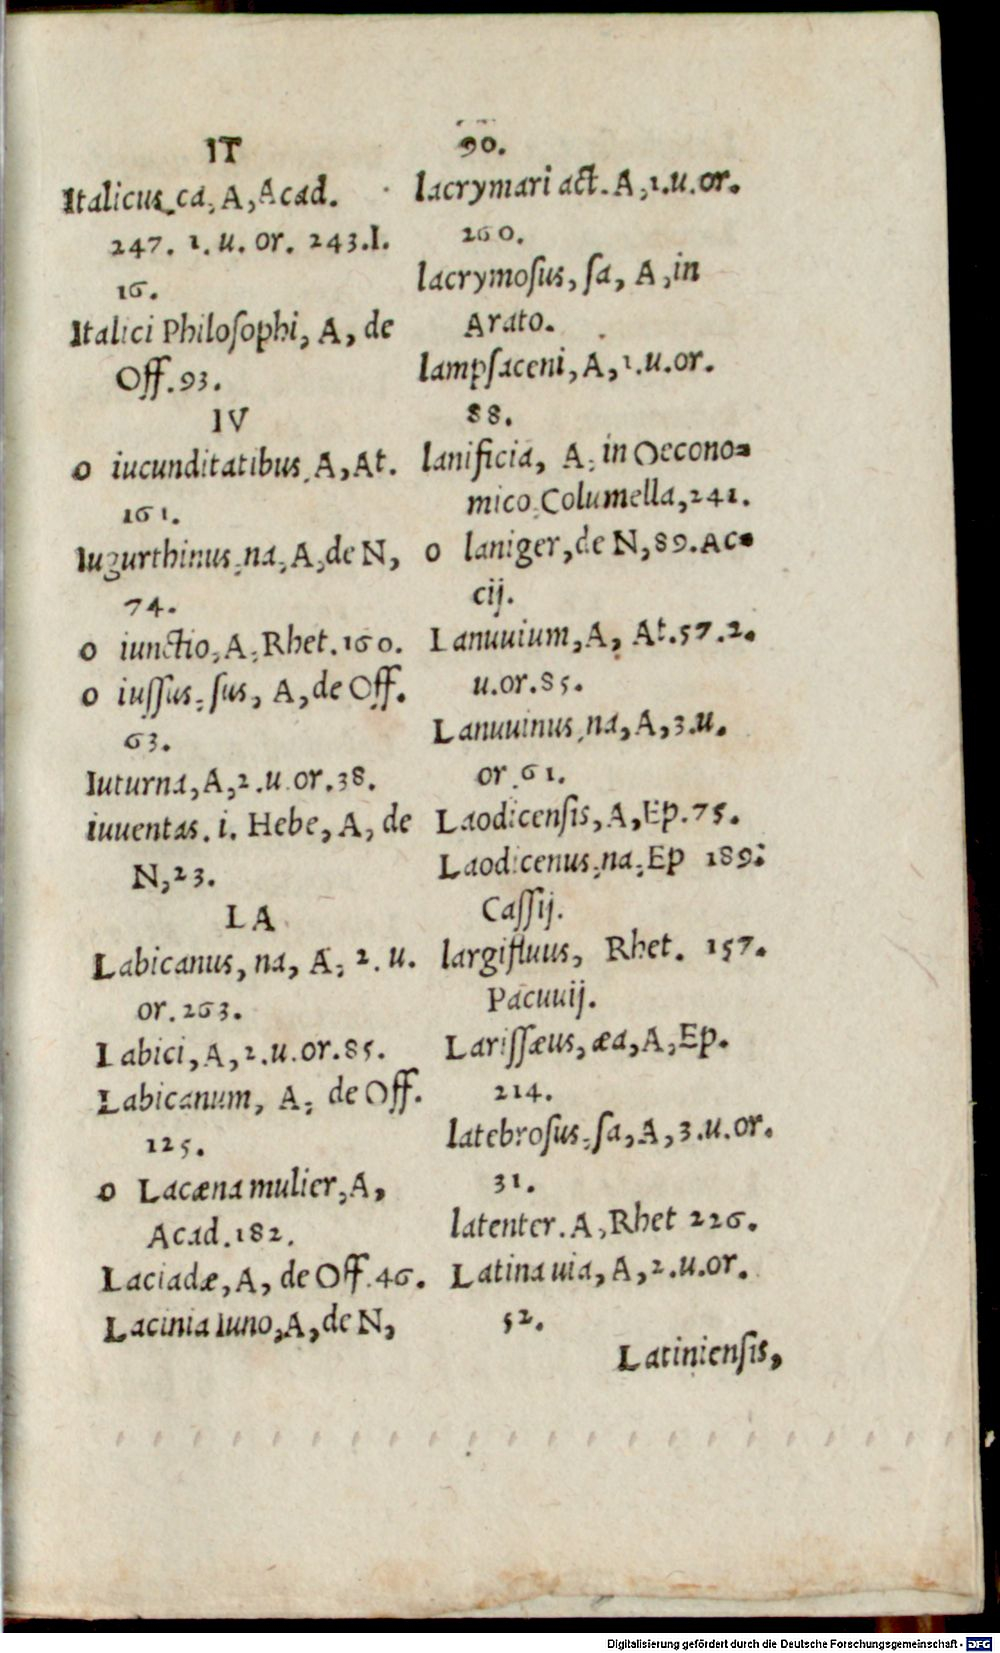 IT
Italicus, ca, A, Acad.
247. 1. u. or. 243. I.
16.
Italici Philoſophi, A, de
Off. 93.
IV
o iucunditatibus, A, At.
161.
Iugurthinus, na, A, de N,
74.
o iunctio, A, Rhet. 160.
o iuſſus, ſus, A, de Off.
63.
Iuturna, A, 2. u. or. 38.
iuuentas. i. Hebe, A, de
N, 23.
LA
Labicanus, na, A, 2. u.
or. 263.
Labici, A, 2. u. or. 85.
Labicanum, A, de Off.
125.
o Lacæna mulier, A,
Acad. 182.
Laciadæ, A, de Off. 46.
Lacinia Iuno, A, de N,
90.
lacrymari act. A, 1. u. or.
260.
lacrymoſus, ſa, A, in
Arato.
lampſaceni, A, 1. u. or.
88.
lanificia, A, in Oecono=
mico Columella, 241.
o laniger, de N, 89. Ac=
cij.
Lanuuium, A, At. 57. 2.
u. or. 85.
Lanuuinus, na, A, 3. u.
or. 61.
Laodicenſis, A, Ep. 75.
Laodicenus, na, Ep 189.
Caſſij.
largifluus, Rhet. 157.
Pacuuij.
Lariſſæus, æa, A, Ep.
214.
latebroſus, ſa, A, 3. u. or.
31.
latenter. A, Rhet 226.
Latina uia, A, 2. u. or.
52.
Latinienſis,
Digitalisierung gefördert durch die Deutsche Forschungsgemeinschaft - DFG